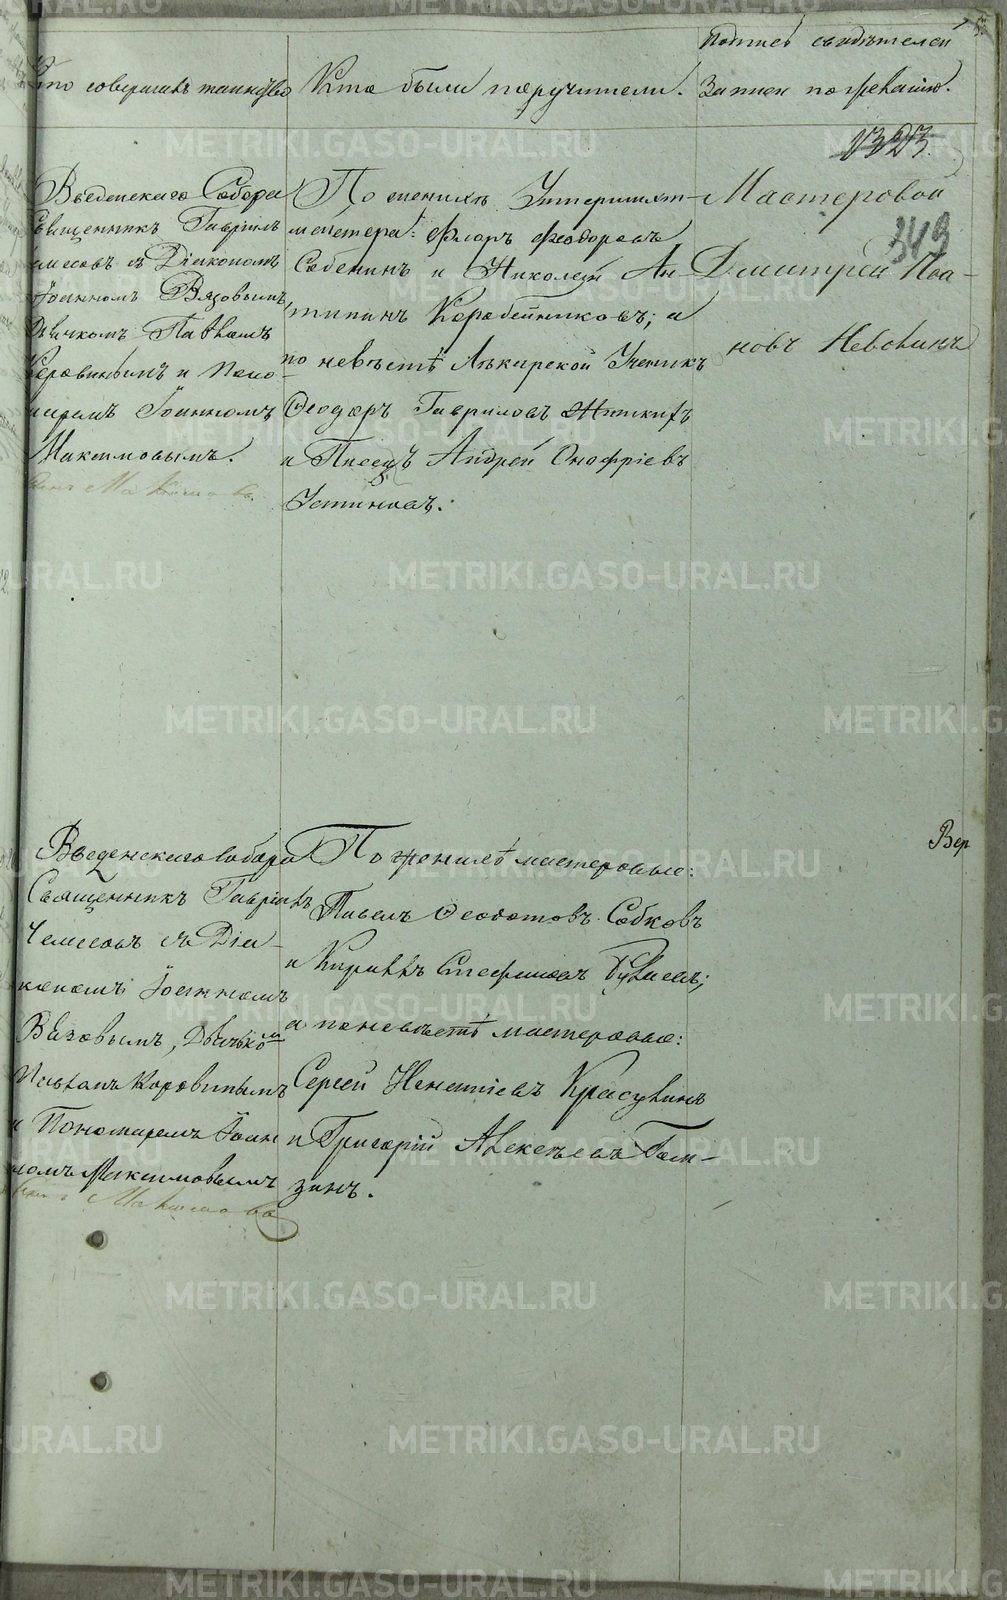 Кто совершалъ таинство
Кто были поручители.
Подпись свидѣтелей
записи по желанію.
1323.
349
Введенскаго Собора
Священникъ Гавріилъ
съ Діакономъ
Іоанномъ Вязовымъ,
Дьячкомъ Павломъ
Коровинымъ и Поно-
маремъ Іоанномъ
Максимовымъ.
По женихѣ
мейстера: Флоръ Феодоровъ
Собенинъ и Николай Ан-
типинъ Коробейниковъ; а
по невѣстѣ Лѣкарской Ученикъ
Феодоръ Гавриловъ
и Писецъ Андрей Онофріевъ
Устиновъ.
Мастеровой
Дмитрей Ива-
новъ
Введенскаго собора
Священникъ Гавріилъ
съ Діа-
кономъ Іоанномъ
Вязовымъ, Дьячком
Павломъ Коровинымъ
и Пономаремъ Іоан
номъ Максимовымъ
По женихѣ мастеровые:
Павелъ Феодотовъ Собковъ
и Кирилъ Стефановъ
а по невѣстѣ мастеровые:
Сергей Игнатіевъ Красулинъ
и Григорій Алексѣевъ
зинъ.
Вер
METRIKI.GASO-URAL.RU